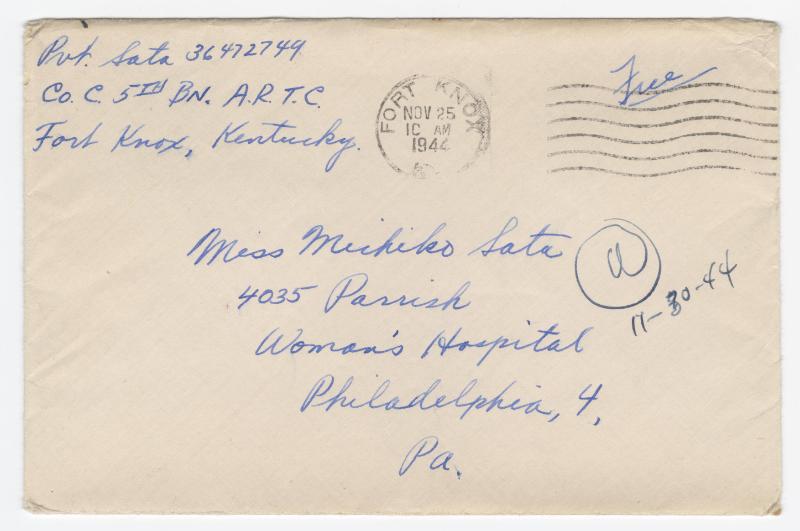 Pvt. Sata 36472749
Co. C. 5TH BN. A.R.T.C.
Fort Knox, Kentucky.
FORT KNOX
NOV 25
10 AM
1944
Free
Miss Michiko Sata
4035 Parrish
Woman's Hospital
Philadelphia, 4,
Pa.
a
11-30-44